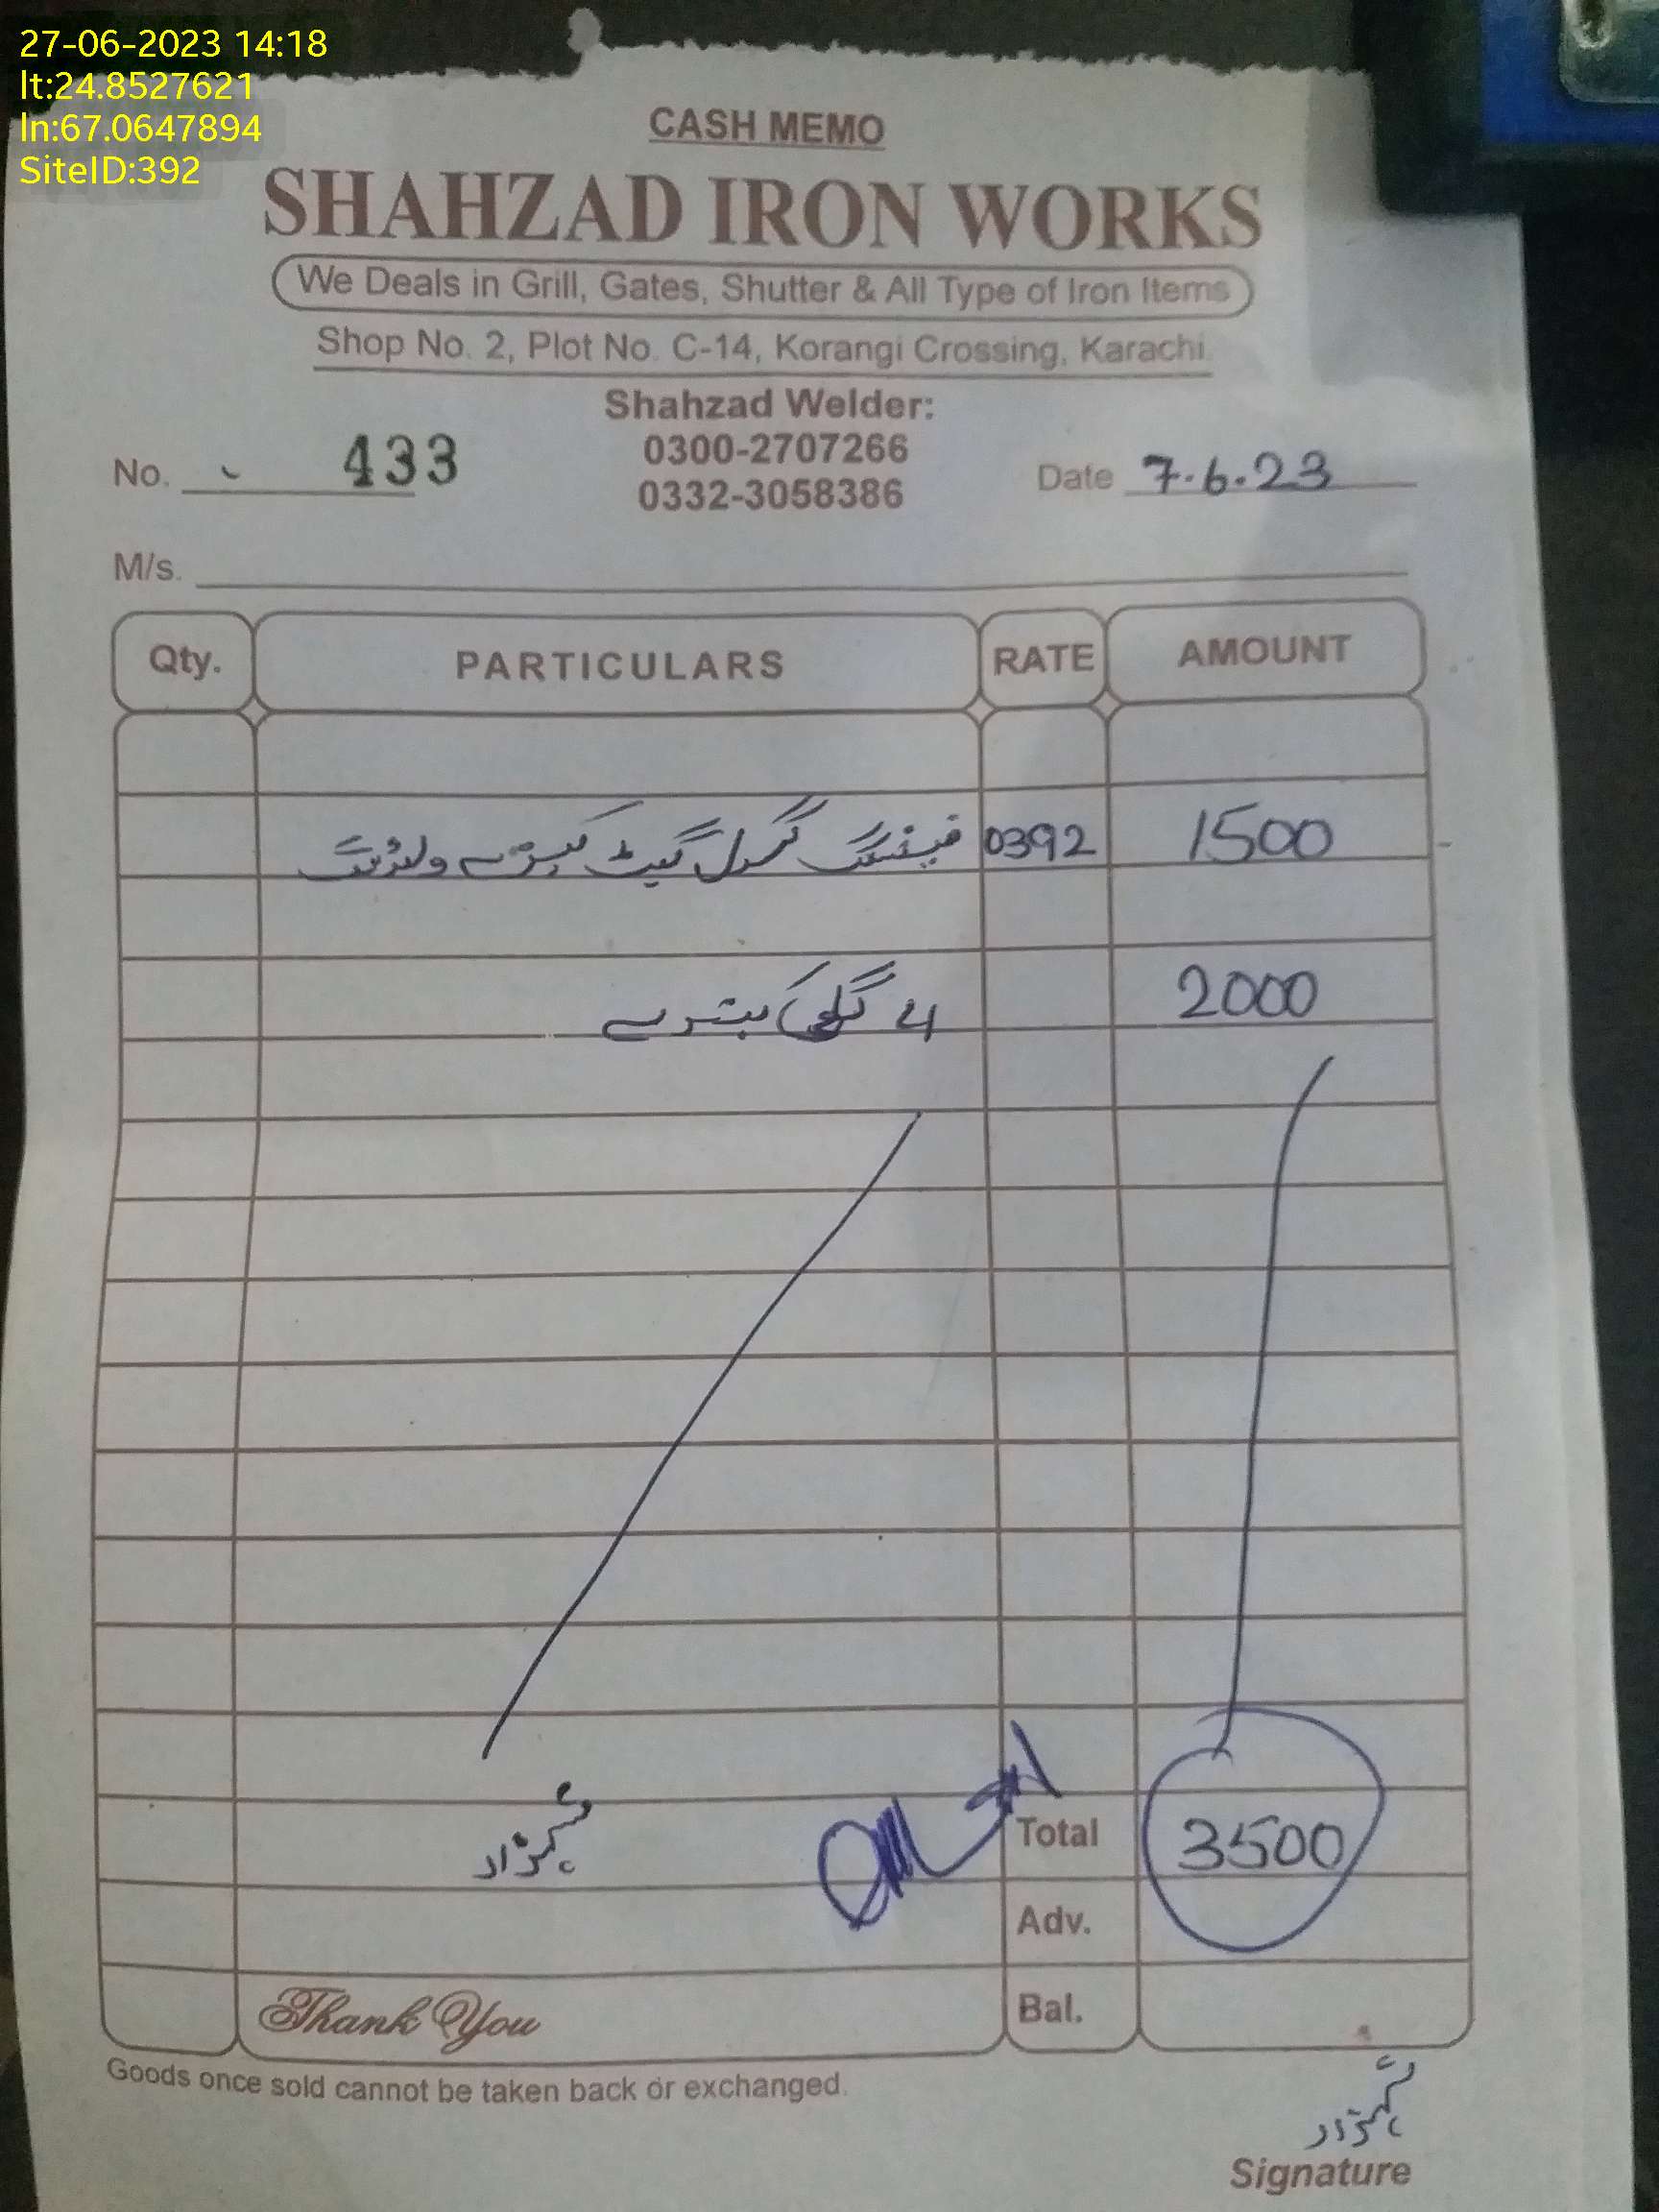 27-06-2023 14:18
lt:24.8527621
ln:67.0647894
SiteID:392
CASH MEMO
SHAHZAD IRON WORKS
We Deals in Grill, Gates, Shutter & All Type of Iron Items
Shop No. 2, Plot No. C-14, Korangi Crossing, Karachi.
Shahzad Welder:
0300-2707266
0332-3058386
No. 433
Date 7.6.23
M/s.
Qty. PARTICULARS RATE AMOUNT
گرل گیٹ 0392 1500
2000
شہزاد
Total 3500
Adv.
Bal.
Thank You
Goods once sold cannot be taken back or exchanged.
شہزاد
Signature